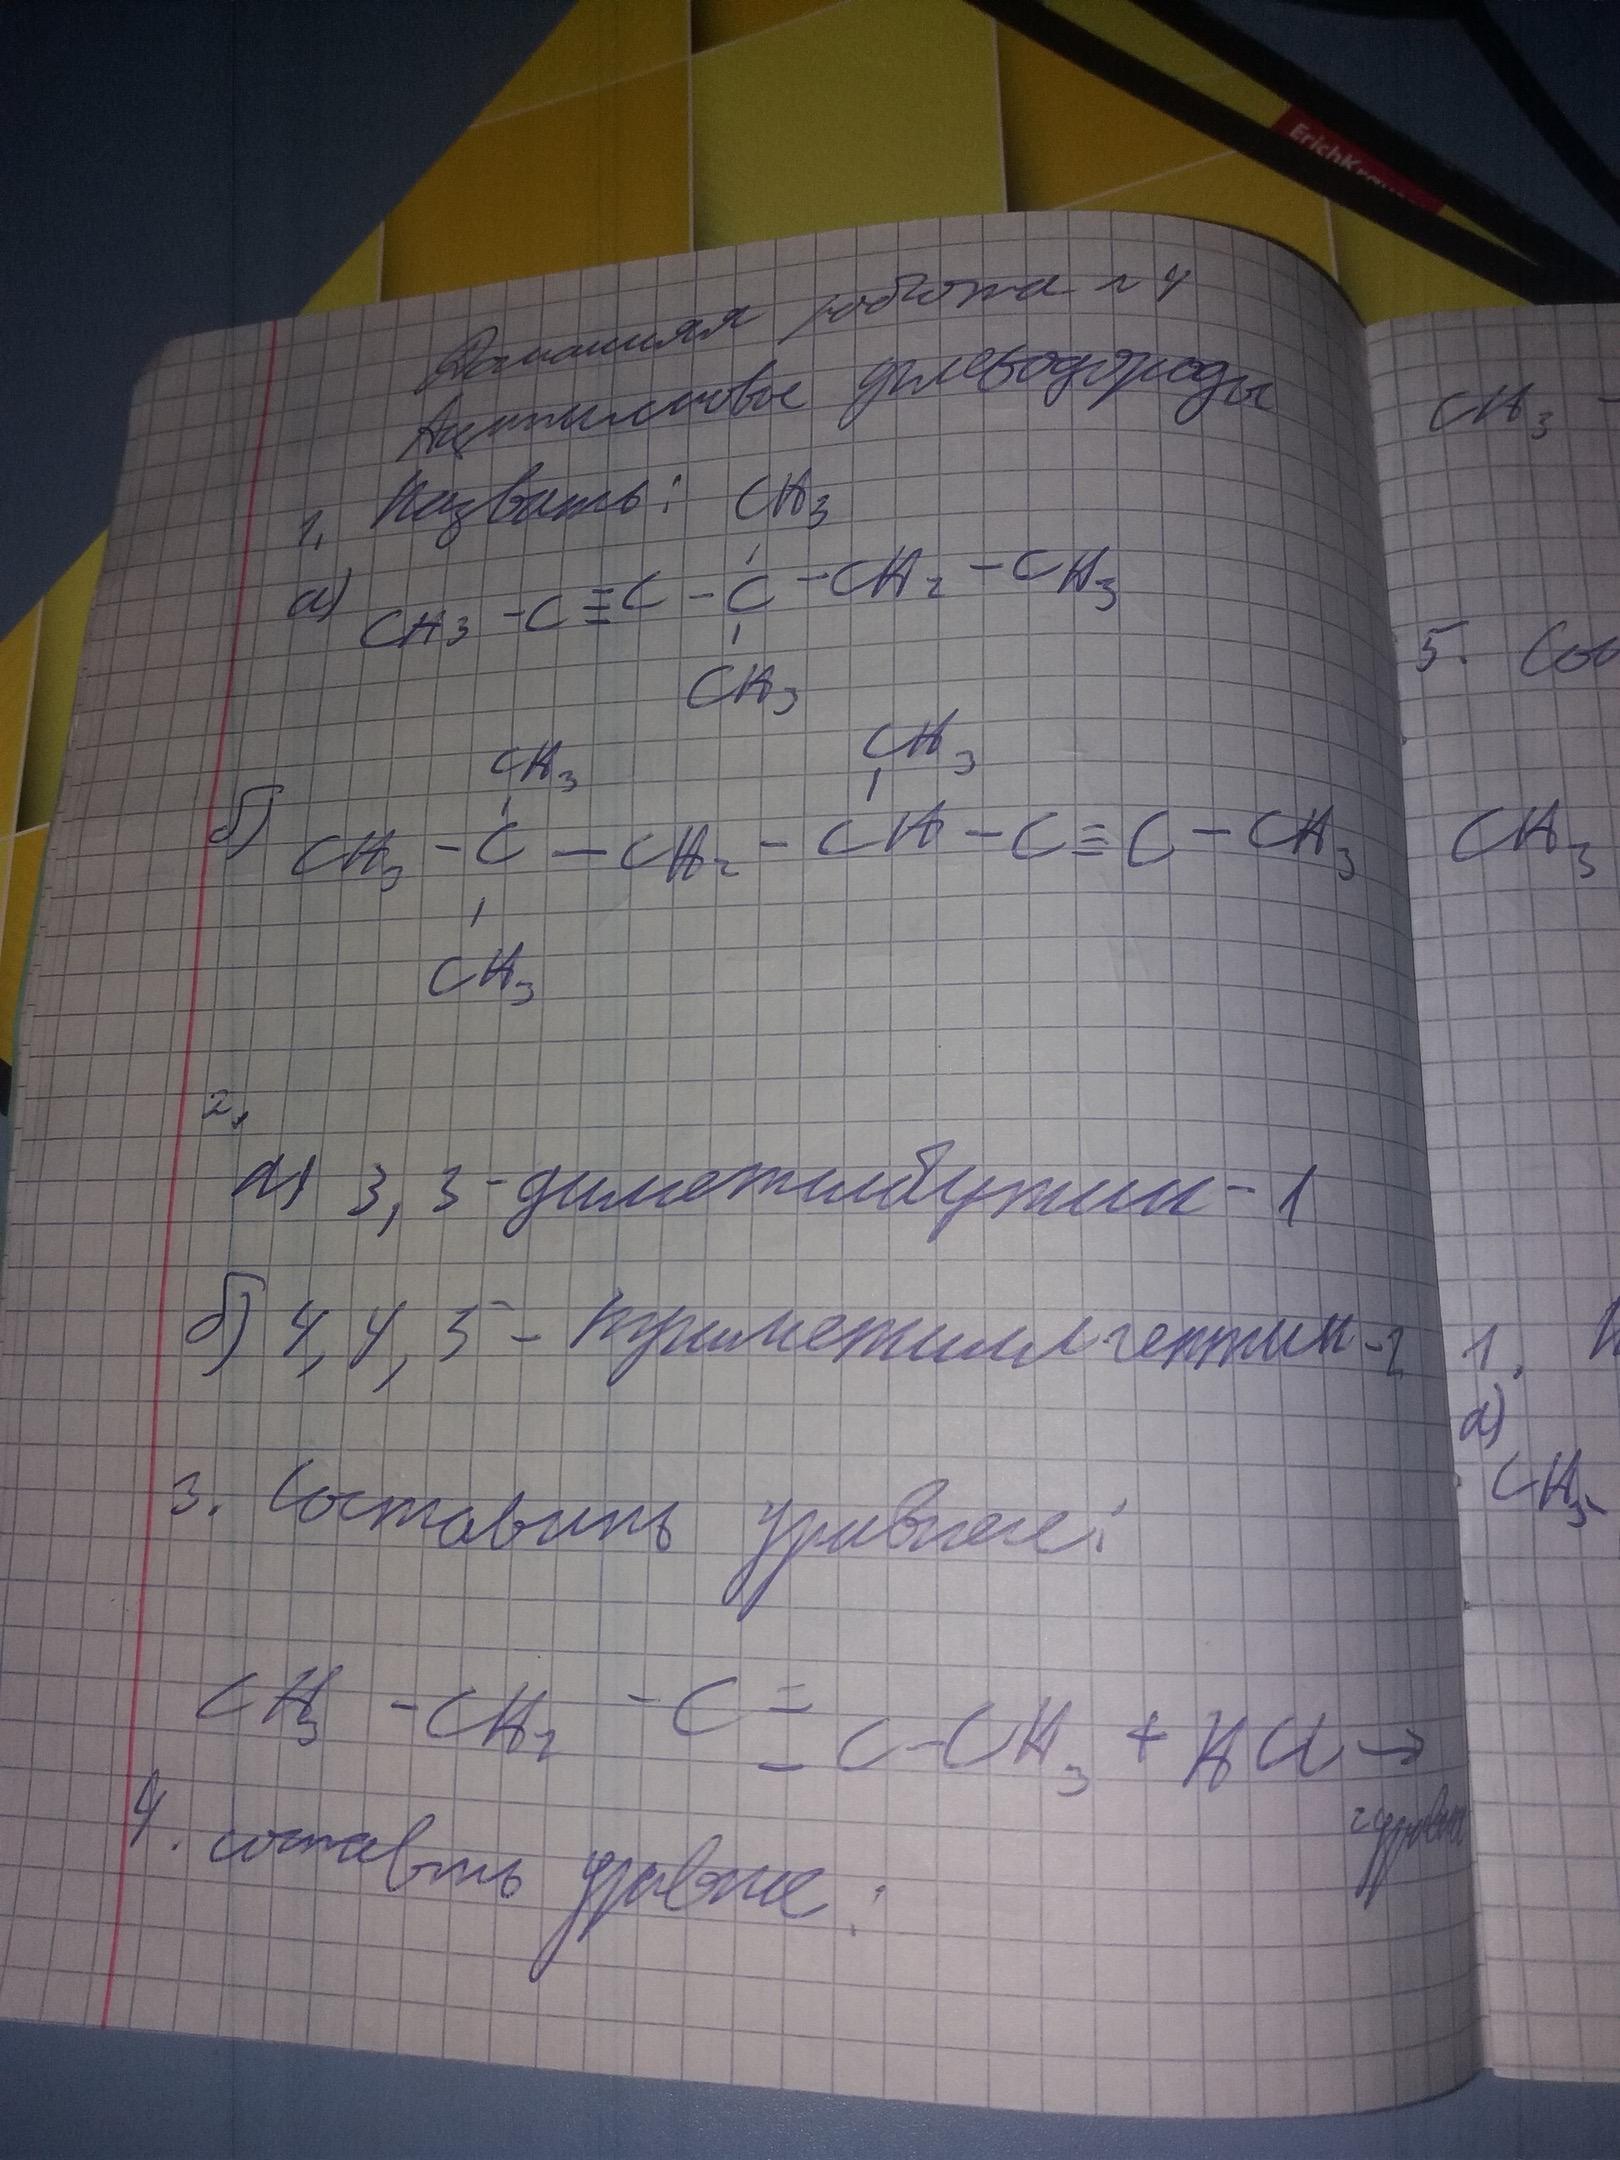 ErichKrause
Домашняя работа №4
Ацетиленовые углеводороды
1. Назвать:
CH3
а) CH3 - C ≡ C - C - CH2 - CH3
CH3
CH3 CH3
б) CH3 - C - CH2 - CH - C ≡ C - CH3
CH3
2.
а) 3,3-диметилбутин-1
б) 4,4,5-триметилгептин-2
3. Составить уравнен:
CH3 - CH2 - C ≡ C - CH3 + HCl →
2 уравн
4. составить уравне:
CH3 -
5. Сос
CH3
1. Н
а)
CH3-